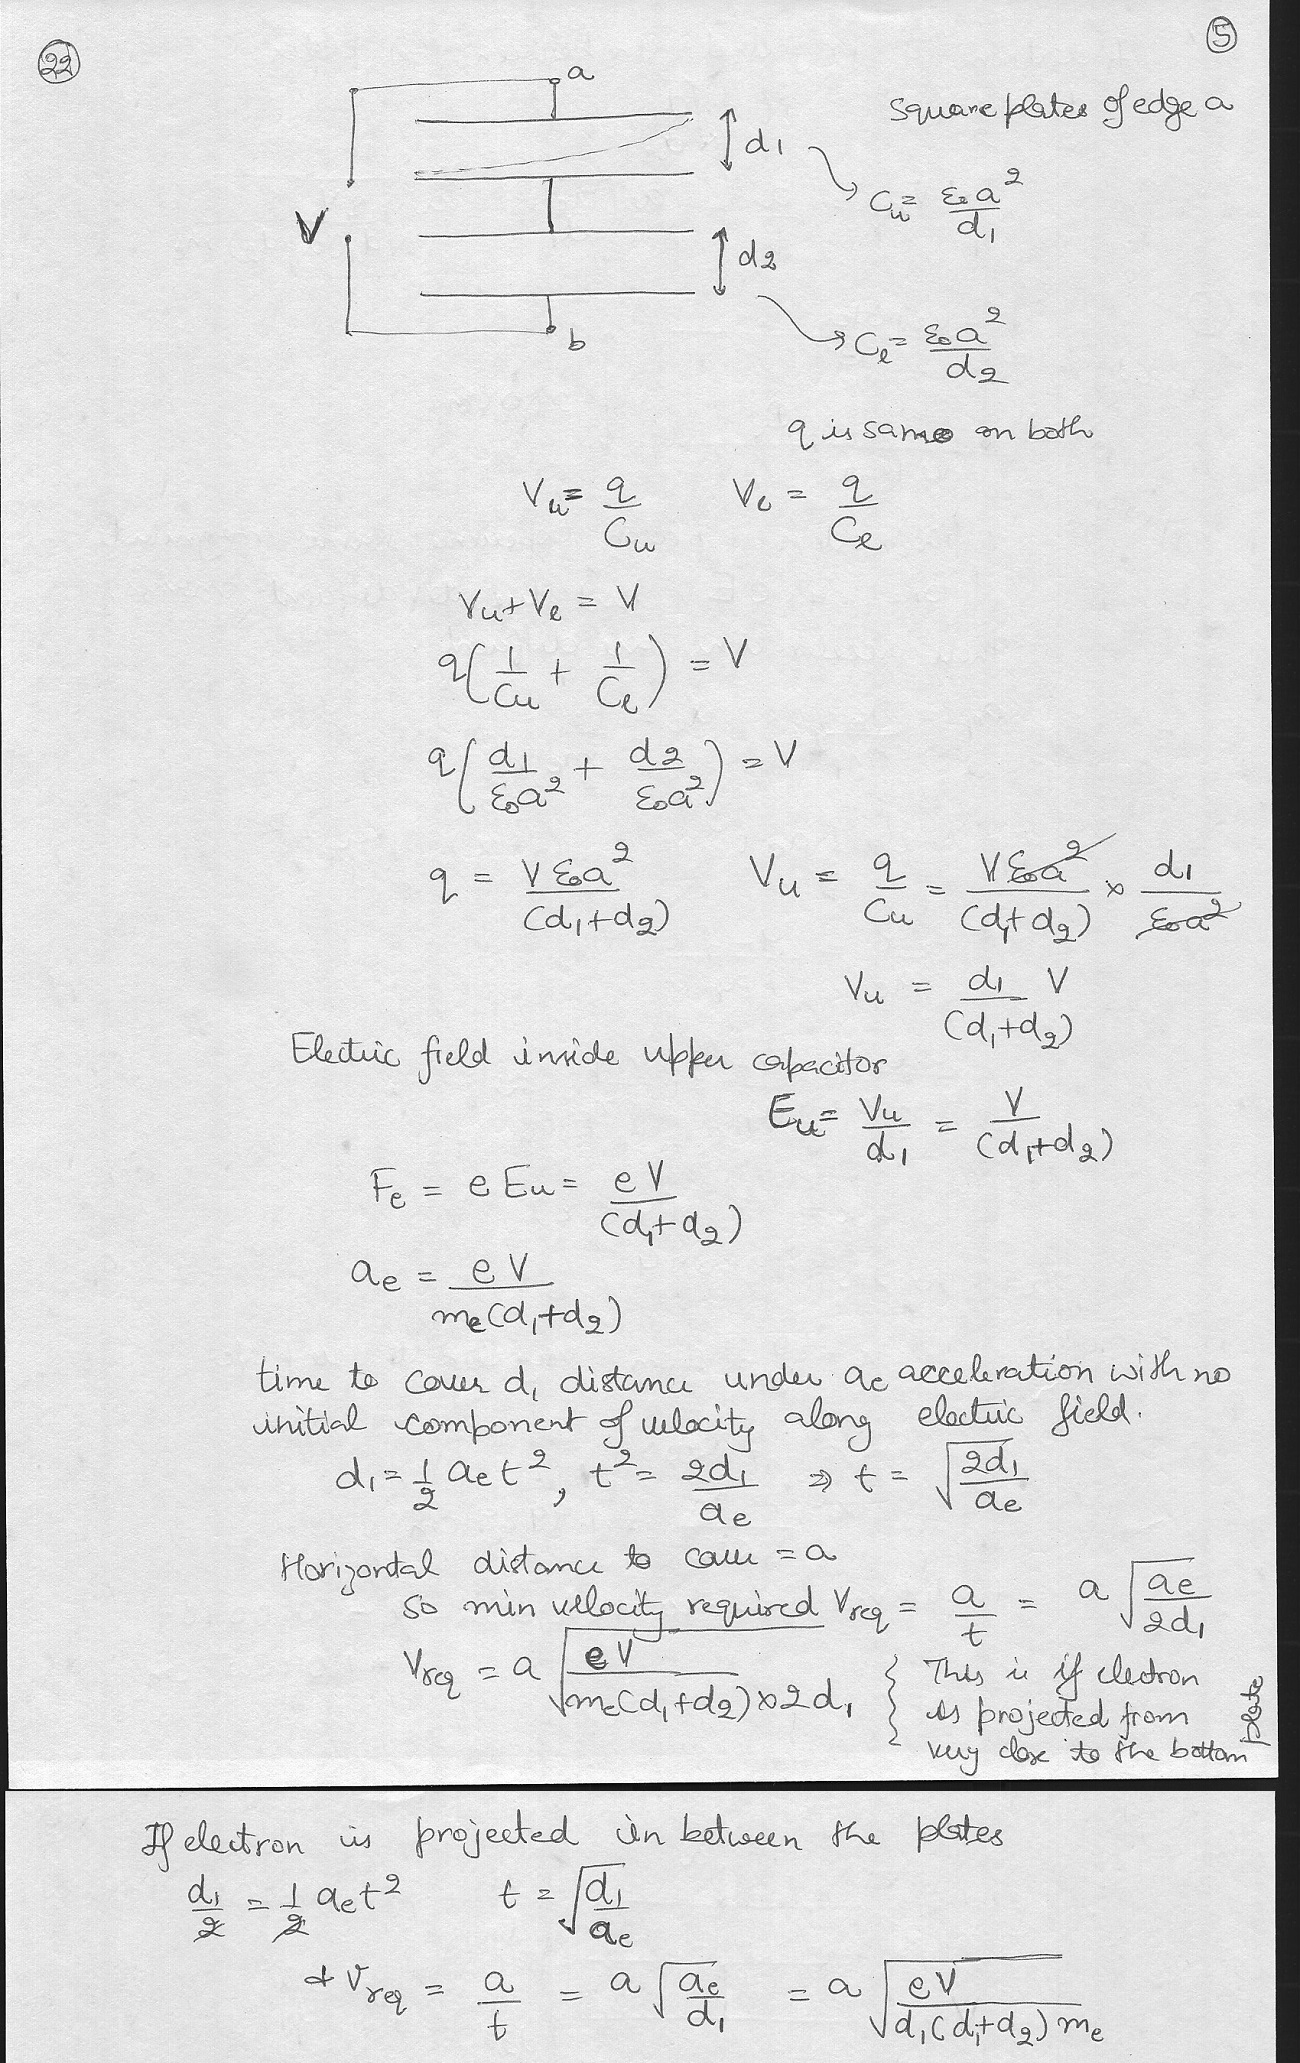 22
5
a
square plates of edge a
d1
Cu = ε0a²/d1
V
d2
b
Cl = ε0a²/d2
q is same on both
Vu = q/Cu    Vl = q/Cl
Vu + Vl = V
q(1/Cu + 1/Cl) = V
q(d1/ε0a² + d2/ε0a²) = V
q = Vε0a²/(d1+d2)    Vu = q/Cu = Vε0a²/(d1+d2) × d1/ε0a²
Vu = d1 V/(d1+d2)
Electric field inside upper capacitor
Eu = Vu/d1 = V/(d1+d2)
Fe = e Eu = eV/(d1+d2)
ae = eV/me(d1+d2)
time to cover d1 distance under ae acceleration with no
initial component of velocity along electric field.
d1 = 1/2 ae t², t² = 2d1/ae ⇒ t = √(2d1/ae)
Horizontal distance to cover = a
so min velocity required Vreq = a/t = a√(ae/2d1)
Vreq = a√(eV/me(d1+d2)×2d1) { This is if electron
is projected from
very close to the bottom plate
If electron is projected in between the plates
d1/2 = 1/2 ae t²    t = √(d1/ae)
& Vreq = a/t = a√(ae/d1) = a√(eV/d1(d1+d2)me)